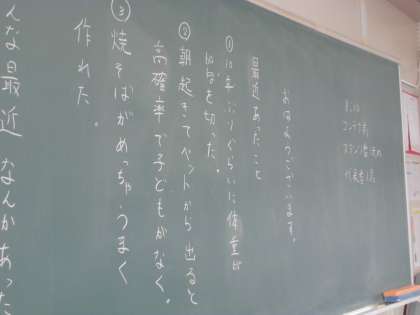 おはようございます。
最近あったこと
①10年ぶりぐらいに体重が
切った。
②朝起きてベットから出ると
高確率で子どもがなく。
③焼そばがめっちゃうまく
作れた。
んな最近なんかあった